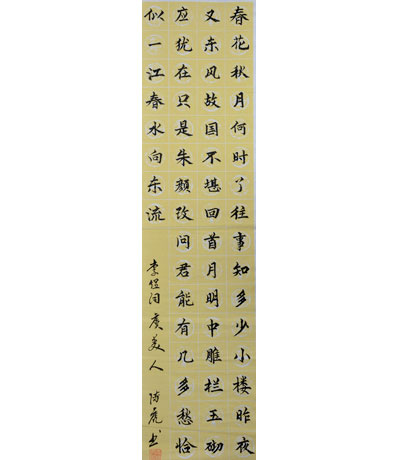 春花秋月何时了往事知多少小楼昨夜
又东风故国不堪回首月明中雕栏玉砌
应犹在只是朱颜改问君能有几多愁恰
似一江春水向东流
李煜词虞美人 书